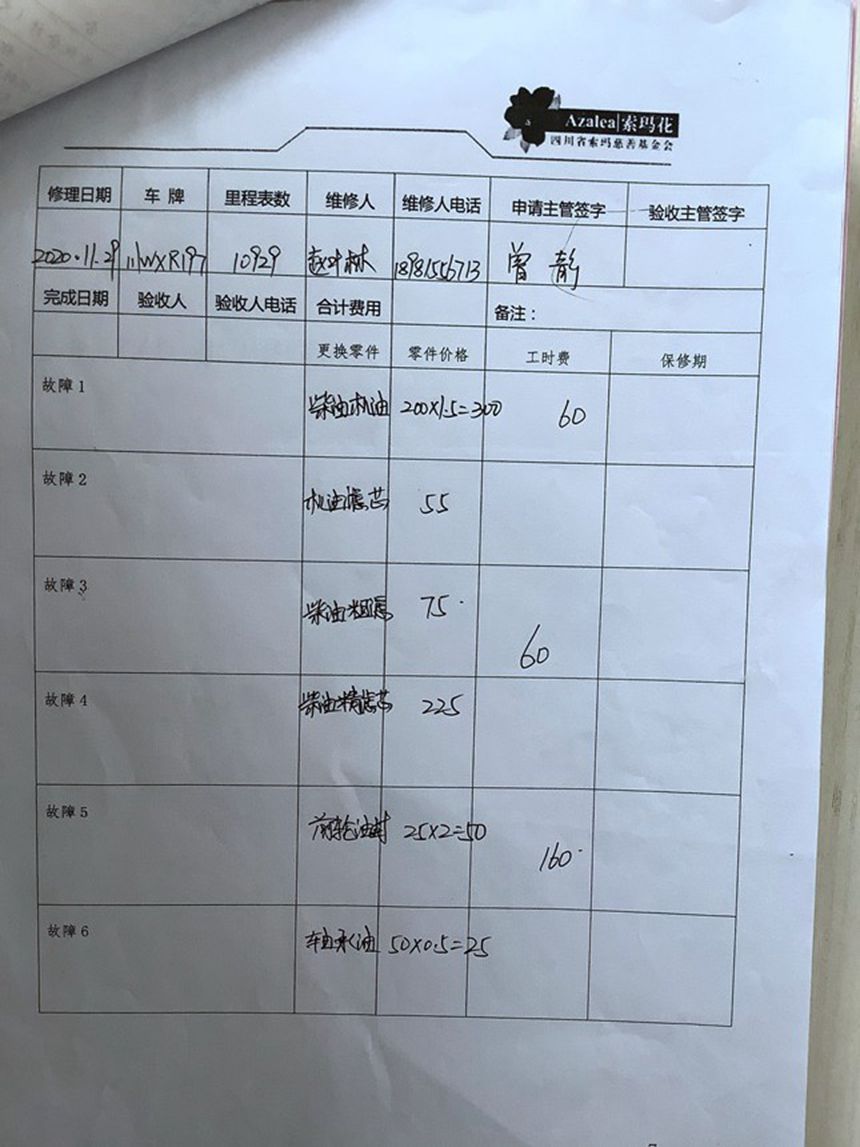 Azalea|索玛花
四川省索玛慈善基金会
修理日期 车 牌 里程表数 维修人 维修人电话 申请主管签字 验收主管签字
2020.11.29 川WXR197 10929 赵叶林 18981556713 曾静
完成日期 验收人 验收人电话 合计费用 备注：
更换零件 零件价格 工时费 保修期
故障1 柴油机油 200×1.5=300 60
故障2 机油滤芯 55
故障3 柴油粗滤 75
60
故障4 柴油精滤芯 225
故障5 前轮油封 25×2=50
160
故障6 轴承油 50×0.5=25